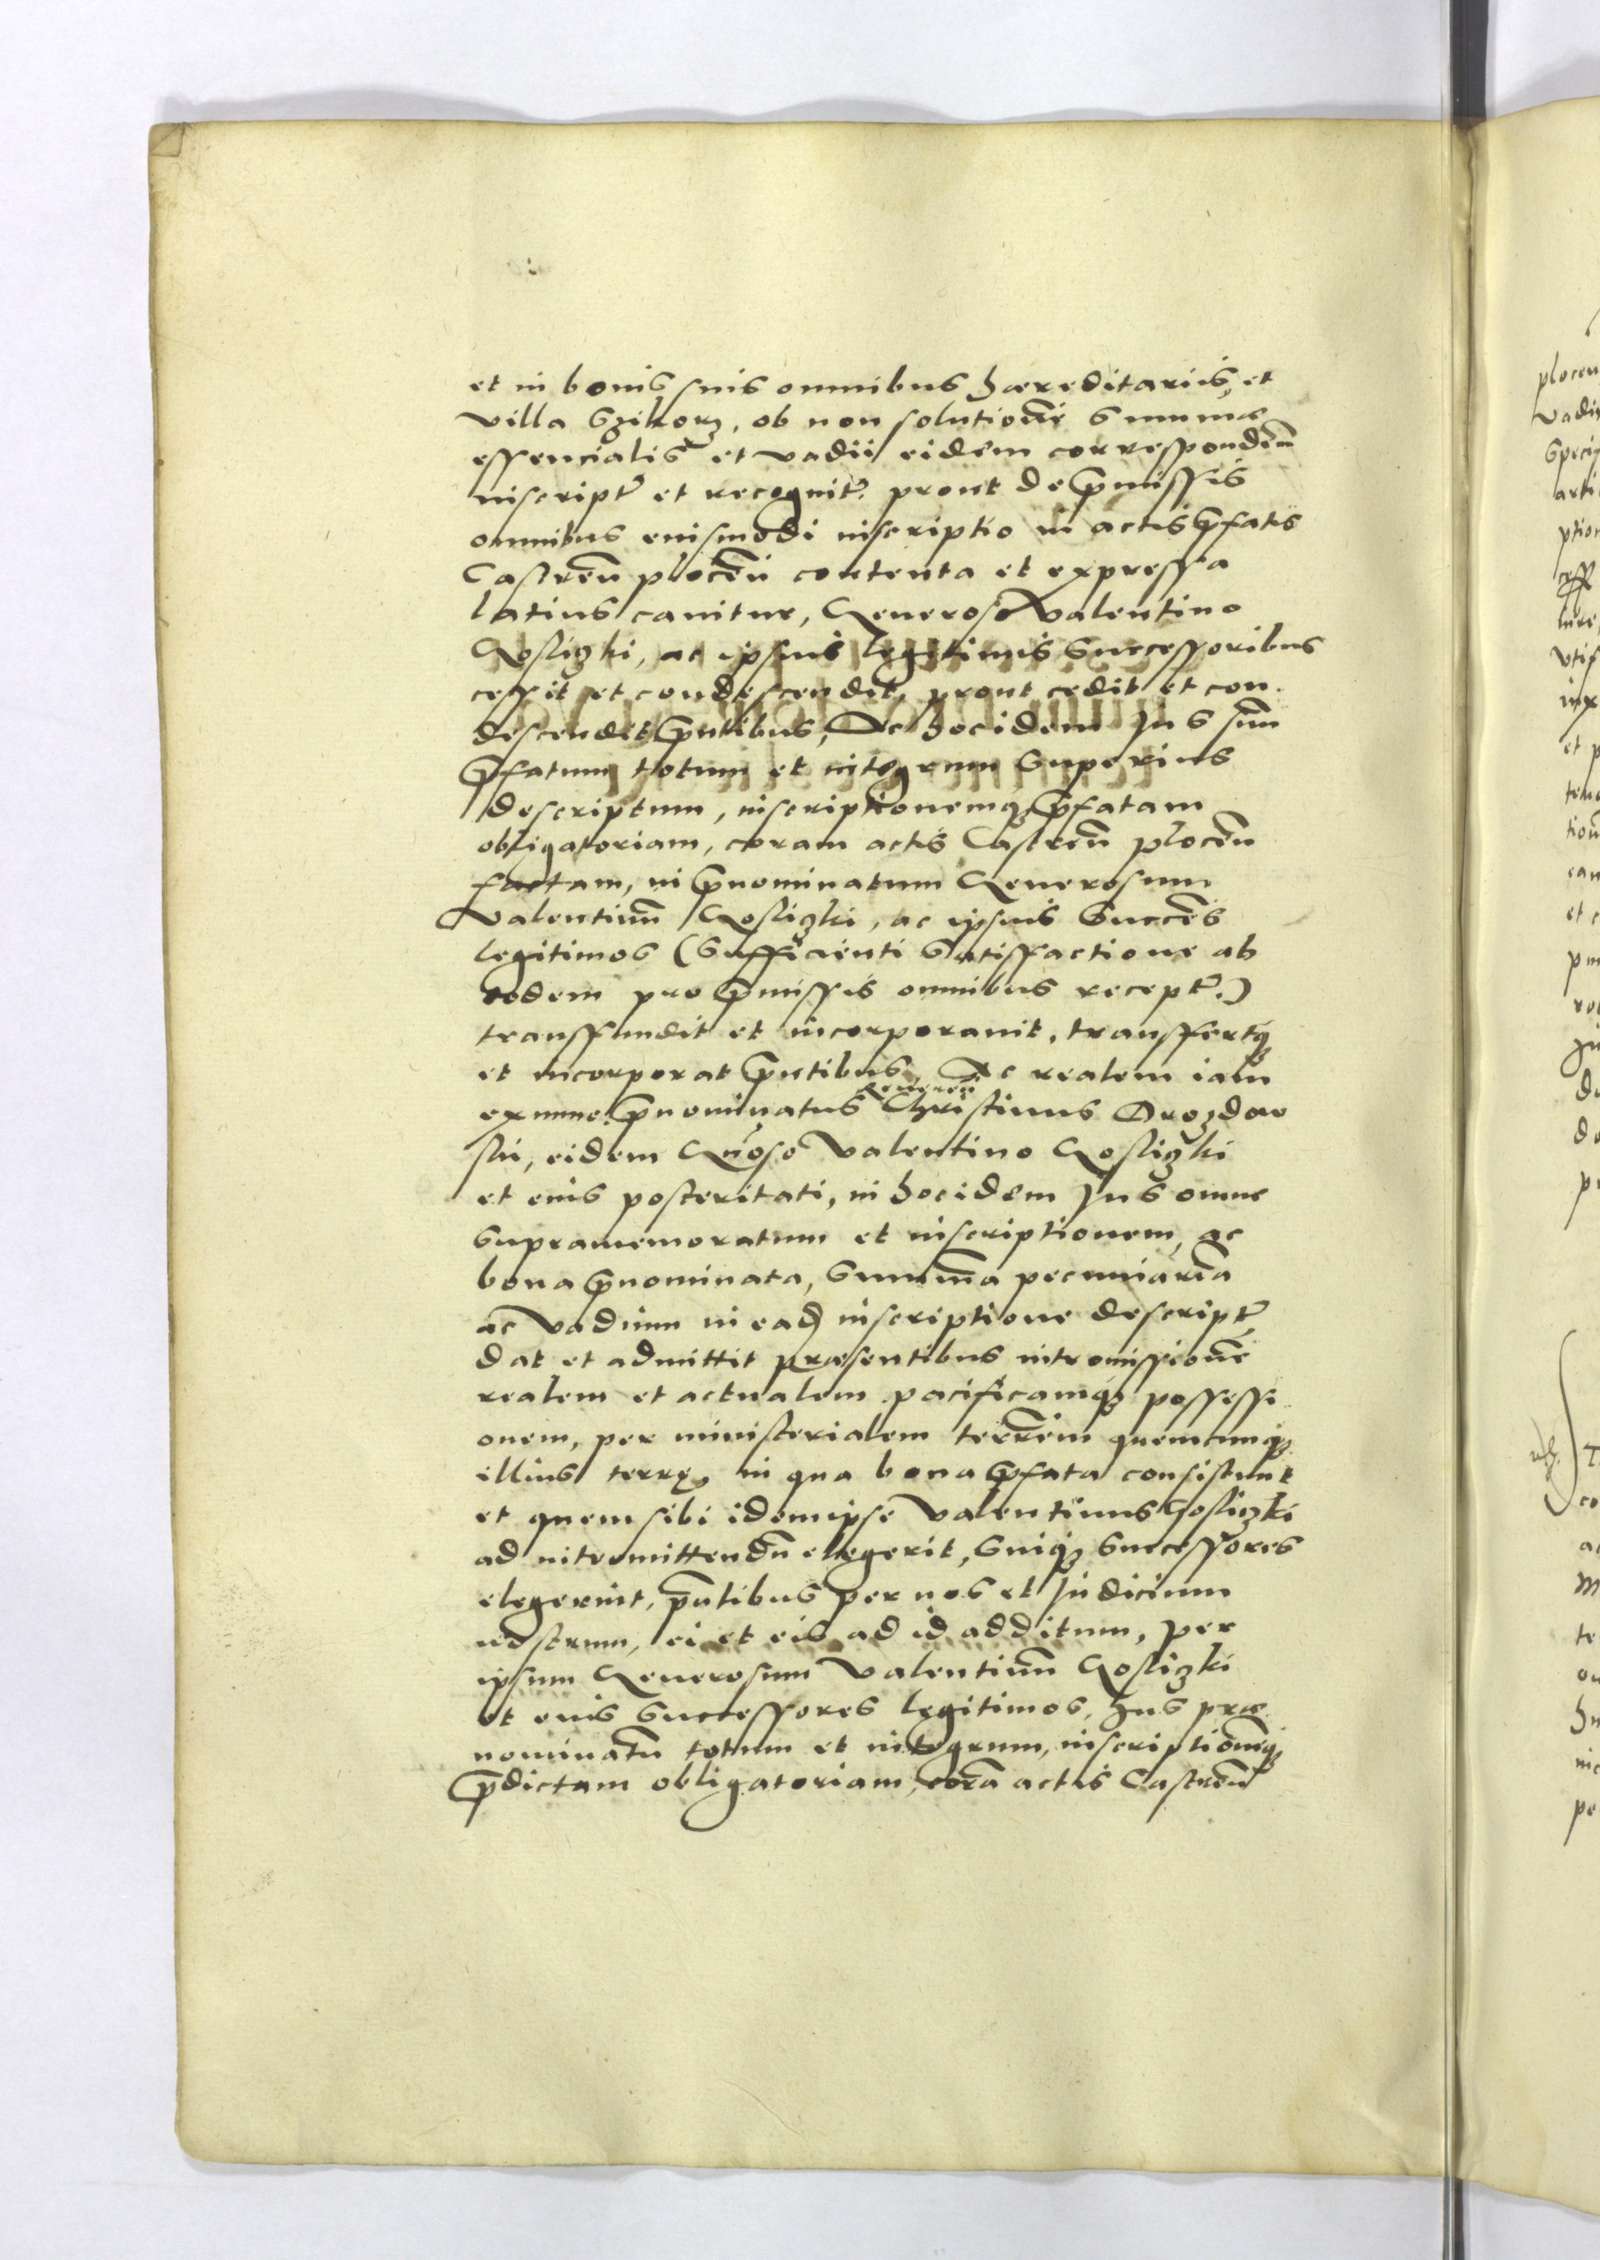 et in bonis suis omnibus hæreditariis, et
villa Szikorz, ob non solutionē summæ
essencialis et vadii eidem correspondeñ
inscript̃ et recognit̃. prout de p̃missis
omnibus eiusmodi inscriptio in actis p̃fatis
Castreñ ploceñ contenta et expressa
latius canitur, Generoso Valentino
Gosliczki, ac ipsius legitimis successoribus
cessit et condescendit, prout cedit et con
descendit p̃ntibus, Ac hocidem Jus suũ
p̃fatum totum et integrum superius
descriptum, inscriptionemq̃ p̃fatam
obligatoriam, coram actis Castreñ ploceñ
factam, in p̃nominatum Generosum
Valentinũ Gosliczki, ac ipsius Succes̃
legitimos (sufficienti satisfactione ab
eodem pro p̃missis omnibus recept̃.)
transfundit et incorporauit, transfertq̃
et incorporat p̃ntibus, Ac realem iam
ex nunc p̃nominatus Christinus Drozdow
ski, eidem Gñoso Valentino Gosliczki
et eius posteritati, in hocidem Jus omne
supramemoratum et inscriptionem, ac
bona p̃nominata, summã pecuniariã
ac vadium in eadẽ inscriptione descript̃
dat et admittit præsentibus intromissionẽ
realem et actualem pacificamq̃ possessi
onem, per ministerialem terreñ quemcunq̃
illius terrę, in qua bona p̃fata consistunt
et quem sibi idem ipse Valentinus Gosliczki
ad intromittendũ elegerit, suiq̃ successores
elegerint, p̃ntibus per nos et Judicium
nostrum, ei et eis ad id additum, per
ipsum Generosum Valentinũ Gosliczki
et eius successores legitimos, Jus præ
nominatũ totum et integrum, inscriptionẽq̃
p̃dictam obligatoriam, corã actis Castreñ